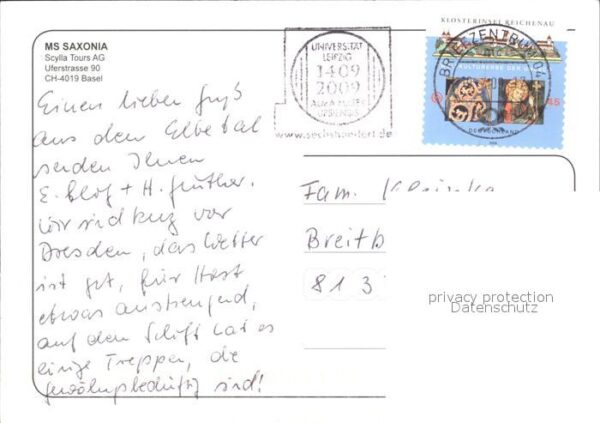 MS SAXONIA
Scylla Tours AG
Uferstrasse 90
CH-4019 Basel
UNIVERSITÄT
LEIPZIG
1409
2009
ALMA MATER
LIPSIENSIS
www.sechshundert.de
KLOSTERINSEL REICHENAU
KULTURERBE DER
45
DEUTSCHLAND
BRIEFZENTRUM 04
Einen lieben Gruß
aus dem Elbetal
senden Ihnen
E. + H. Günther.
Wir sind kurz vor
Dresden, das Wetter
ist gut, für Horst
etwas anstrengend,
auf dem Schiff hat es
einige Treppen, die
gewöhnungsbedürftig sind!
Fam.
Breitb
813
privacy protection
Datenschutz